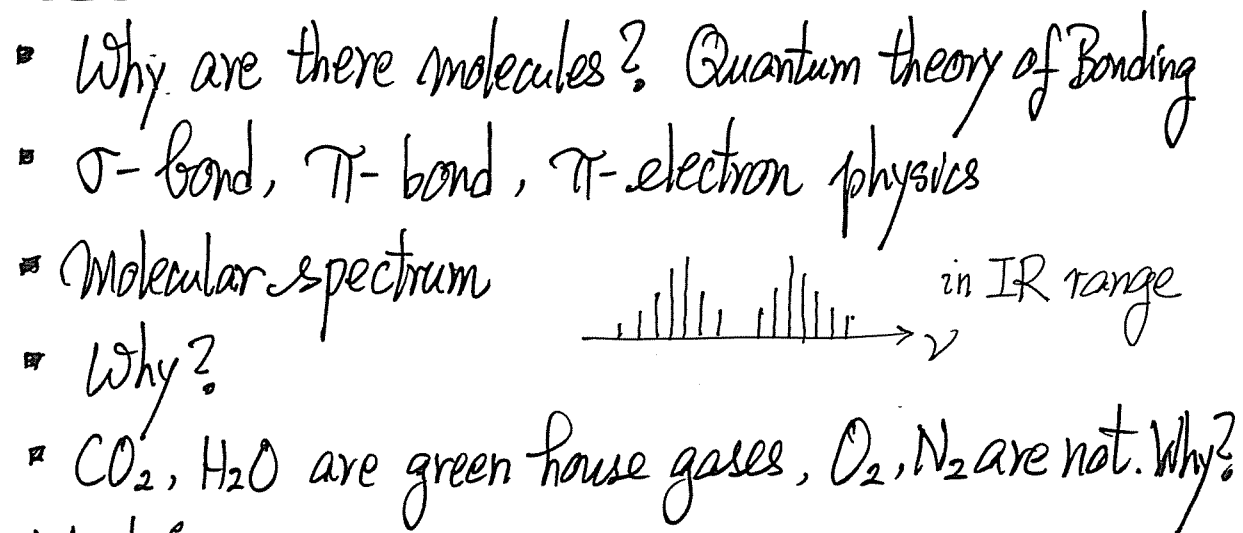 ▪ Why are there molecules? Quantum theory of Bonding
▪ σ-bond, π-bond, π-electron physics
▪ Molecular spectrum in IR range
ν
▪ Why?
▪ CO₂, H₂O are green house gases, O₂, N₂ are not. Why?